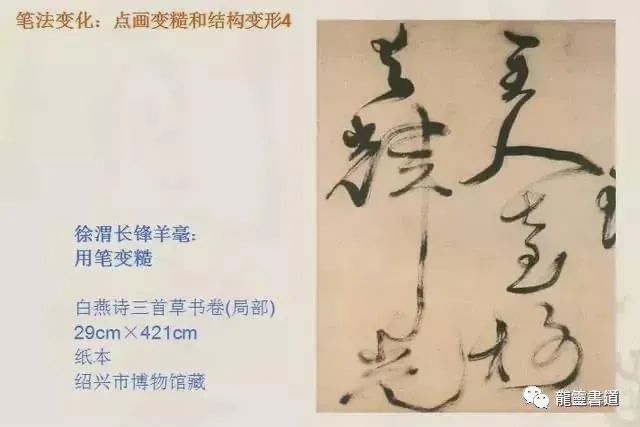 笔法变化：点画变糙和结构变形4
徐渭长锋羊毫：
用笔变糙
白燕诗三首草书卷(局部)
29cm×421cm
纸本
绍兴市博物馆藏
主人
光
龍靈書道